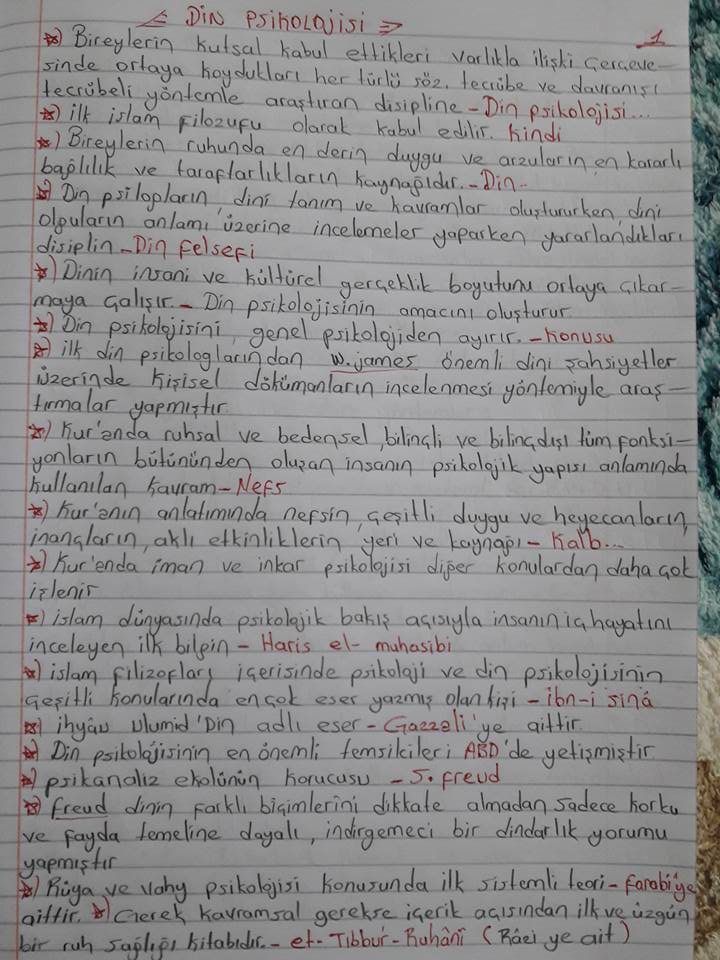 Din Psikolojisi
1
*) Bireylerin kutsal kabul ettikleri varlıkla ilişki çerçeve-
sinde ortaya koydukları her türlü söz, tecrübe ve davranışı
tecrübeli yöntemle araştıran disipline - Din psikolojisi...
*) ilk islam filozufu olarak kabul edilir. Kindi
*) Bireylerin ruhunda en derin duygu ve arzuların, en kararlı
bağlılık ve taraftarlıkların kaynağıdır. - Din..
*) Din psilogların, dini tanım ve kavramlar oluştururken, dini
olguların anlamı üzerine incelemeler yaparken yararlandıkları
disiplin - Din felsefi
*) Dinin insani ve kültürel gerçeklik boyutunu ortaya çıkar-
maya çalışır. - Din psikolojisinin amacını oluşturur
*) Din psikolojisini, genel psikolojiden ayırır. - Konusu
*) ilk din psikologlarından W. james önemli dini şahsiyetler
üzerinde kişisel dökümanların incelenmesi yöntemiyle araş-
tırmalar yapmıştır
*) Kur'anda ruhsal ve bedensel, bilinçli ve bilinçdışı tüm fonksi-
yonların bütününden oluşan insanın psikolojik yapısı anlamında
kullanılan kavram - Nefs
*) Kur'anın anlatımında nefsin, çeşitli duygu ve heyecanların,
inançların, akli etkinliklerin yeri ve kaynağı - Kalb...
*) Kur'anda iman ve inkar psikolojisi diğer konulardan daha çok
işlenir
*) islam dünyasında psikolojik bakış açısıyla insanın iç hayatını
inceleyen ilk bilgin - Haris el- muhasibi
*) islam filizofları içerisinde psikoloji ve din psikolojisinin
çeşitli konularında en çok eser yazmış olan kişi - ibn-i sinâ
*) ihyâu ulumid'Din adlı eser - Gazzali'ye aittir.
*) Din psikolojisinin en önemli temsilcileri ABD'de yetişmiştir
*) psikanaliz ekolünün korucusu - S. freud
*) freud dinin farklı biçimlerini dikkate almadan sadece korku
ve fayda temeline dayalı, indirgemeci bir dindarlık yorumu
yapmıştır
*) Rüya ve vahy psikolojisi konusunda ilk sistemli teori - farabi'ye
aittir. *) Gerek kavramsal gerekse içerik açısından ilk ve üzgün
bir ruh sağlığı kitabıdır. - et- Tıbbur- Ruhânî (Râzi ye ait)